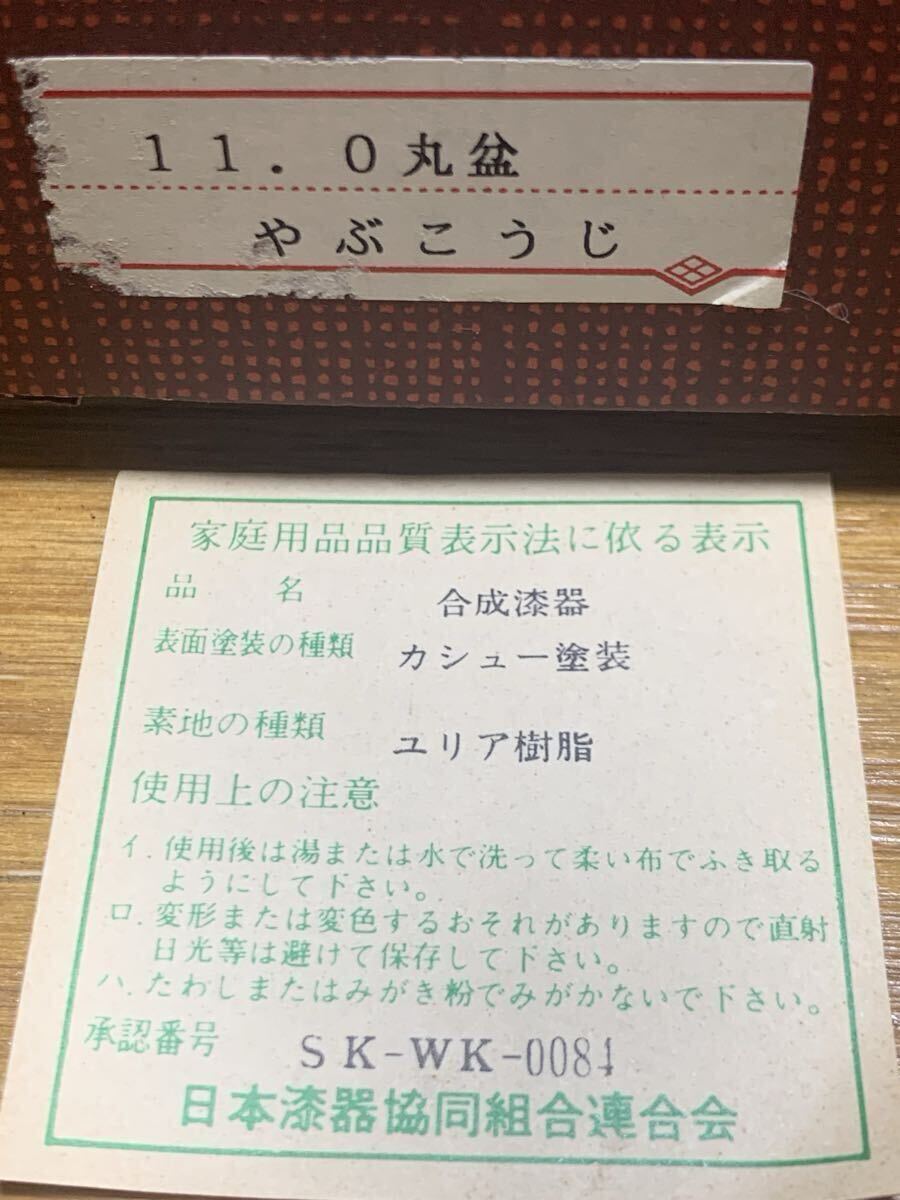 １１．０丸盆
やぶこうじ
家庭用品品質表示法に依る表示
品　　名　合成漆器
表面塗装の種類　カシュー塗装
素地の種類　ユリア樹脂
使用上の注意
イ．使用後は湯または水で洗って柔い布でふき取る
ようにして下さい。
ロ．変形または変色するおそれがありますので直射
日光等は避けて保存して下さい。
ハ．たわしまたはみがき粉でみがかないで下さい。
承認番号　ＳＫ－ＷＫ－0084
日本漆器協同組合連合会